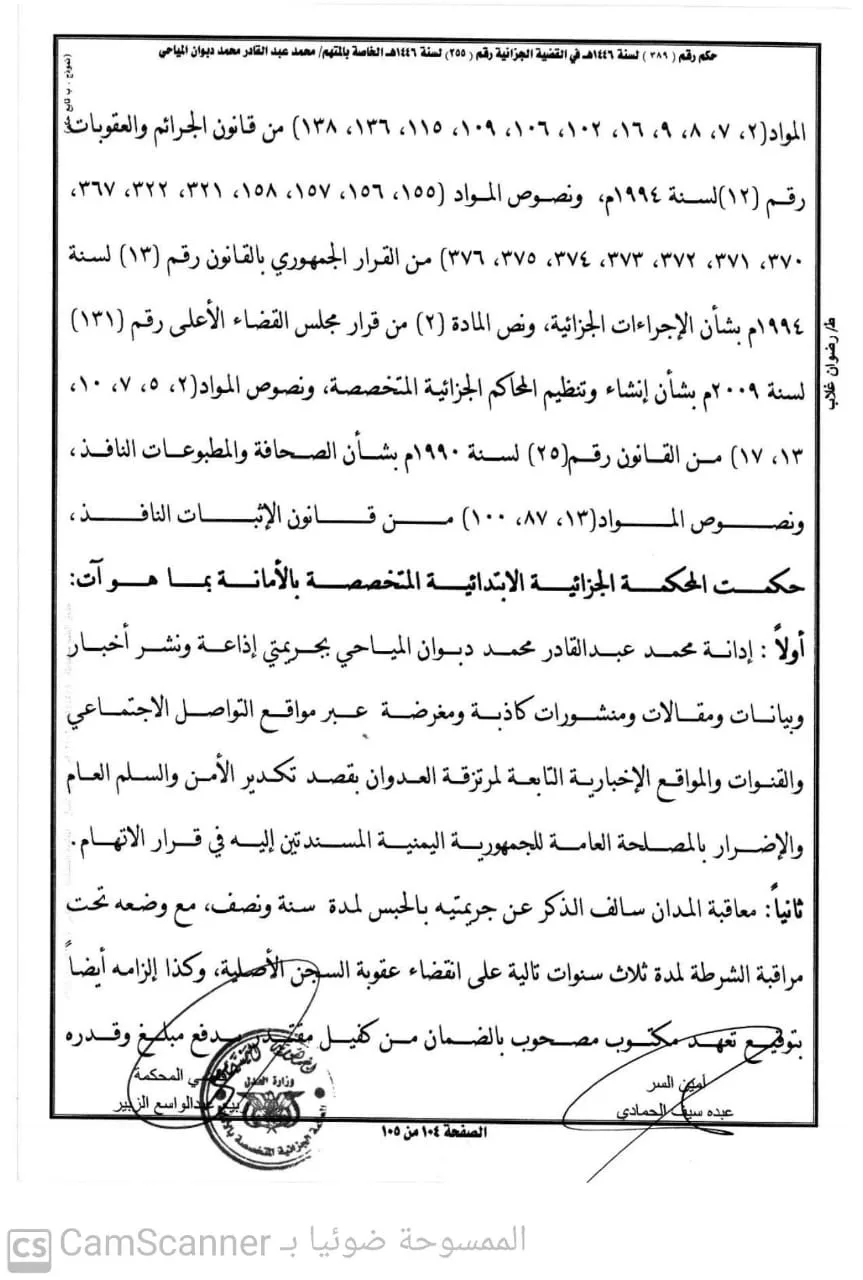 حكم رقم ( ٣٨٩ ) لسنة ١٤٤٦هـ في القضية الجزائية رقم ( ٢٥٥ ) لسنة ١٤٤٦هـ الخاصة بالمتهم/ محمد عبد القادر محمد دبوان المياحي
المواد(٢، ٧، ٨، ٩، ١٦، ١٠٢، ١٠٦، ١٠٩، ١١٥، ١٣٦، ١٣٨) من قانون الجرائم والعقوبات
رقم (١٢)لسنة ١٩٩٤م، ونصوص المواد (١٥٥، ١٥٦، ١٥٧، ١٥٨، ٣٢١، ٣٢٢، ٣٦٧،
٣٧٠، ٣٧١، ٣٧٢، ٣٧٣، ٣٧٤، ٣٧٥، ٣٧٦) من القرار الجمهوري بالقانون رقم (١٣) لسنة
١٩٩٤م بشأن الإجراءات الجزائية، ونص المادة (٢) من قرار مجلس القضاء الأعلى رقم (١٣١)
لسنة ٢٠٠٩م بشأن إنشاء وتنظيم المحاكم الجزائية المتخصصة، ونصوص المواد(٢، ٥، ٧، ١٠،
١٣، ١٧) من القانون رقم(٢٥) لسنة ١٩٩٠م بشأن الصحافة والمطبوعات النافذ،
ونصوص المواد(١٣، ٨٧، ١٠٠) من قانون الإثبات النافذ،
حكمت المحكمة الجزائية الابتدائية المتخصصة بالأمانة بما هو آت:
أولاً : إدانة محمد عبدالقادر محمد دبوان المياحي بجريمتي إذاعة ونشر أخبار
وبيانات ومقالات ومنشورات كاذبة ومغرضة عبر مواقع التواصل الاجتماعي
والقنوات والمواقع الإخبارية التابعة لمرتزقة العدوان بقصد تكدير الأمن والسلم العام
والإضرار بالمصلحة العامة للجمهورية اليمنية المسندتين إليه في قرار الاتهام.
ثانياً: معاقبة المدان سالف الذكر عن جريمتيه بالحبس لمدة سنة ونصف، مع وضعه تحت
مراقبة الشرطة لمدة ثلاث سنوات تالية على انقضاء عقوبة السجن الأصلية، وكذا إلزامه أيضاً
بتوقيع تعهد مكتوب مصحوب بالضمان من كفيل مقتدر بدفع مبلغ وقدره
أمين السر
عبده سيف الحمادي
المحكمة
عبدالواسع الزبير
وزارة العدل
الصفحة ١٠٤ من ١٠٥
ط/ رضوان غلاب
CS CamScanner الممسوحة ضوئيا بـ